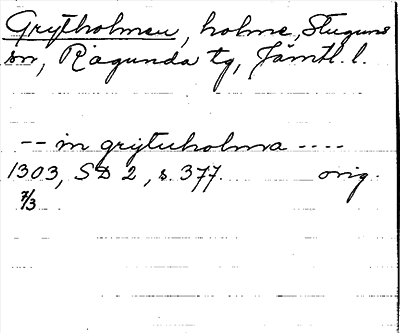 Grytholmen, holme, Stuguns
sn, Ragunda tg, Jämtl. l.
-- in grytuholma ----
1303, SD 2, s. 377. orig.
7/3